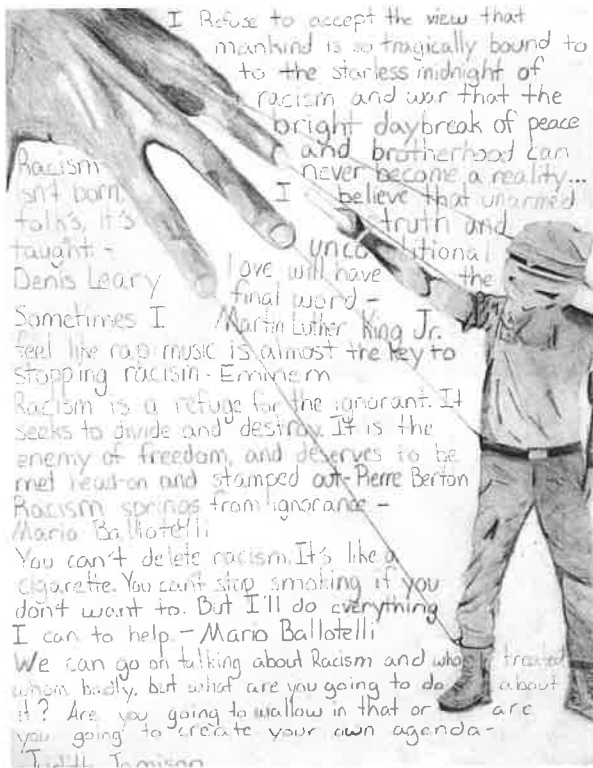 I Refuse to accept the view that
mankind is so tragically bound to
to the starless midnight of
racism and war that the
bright daybreak of peace
and brotherhood can
never become a reality...
I believe that unarmed
truth and
unconditional
love will have the
final word -
Martin Luther King Jr.
Racism
isn't born,
folks, it's
taught -
Denis Leary
Sometimes I
feel like rap music is almost the key to
stopping racism - Eminem
Racism is a refuge for the ignorant. It
seeks to divide and destroy. It is the
enemy of freedom, and deserves to be
met head-on and stamped out - Pierre Berton
Racism springs from ignorance -
Mario Ballotelli
You can't delete racism. It's like a
cigarette. You can't stop smoking if you
don't want to. But I'll do everything
I can to help. - Mario Ballotelli
We can go on talking about Racism and who treated
whom badly, but what are you going to do about
it? Are you going to wallow in that or are
you going to create your own agenda -
Judith Jamison